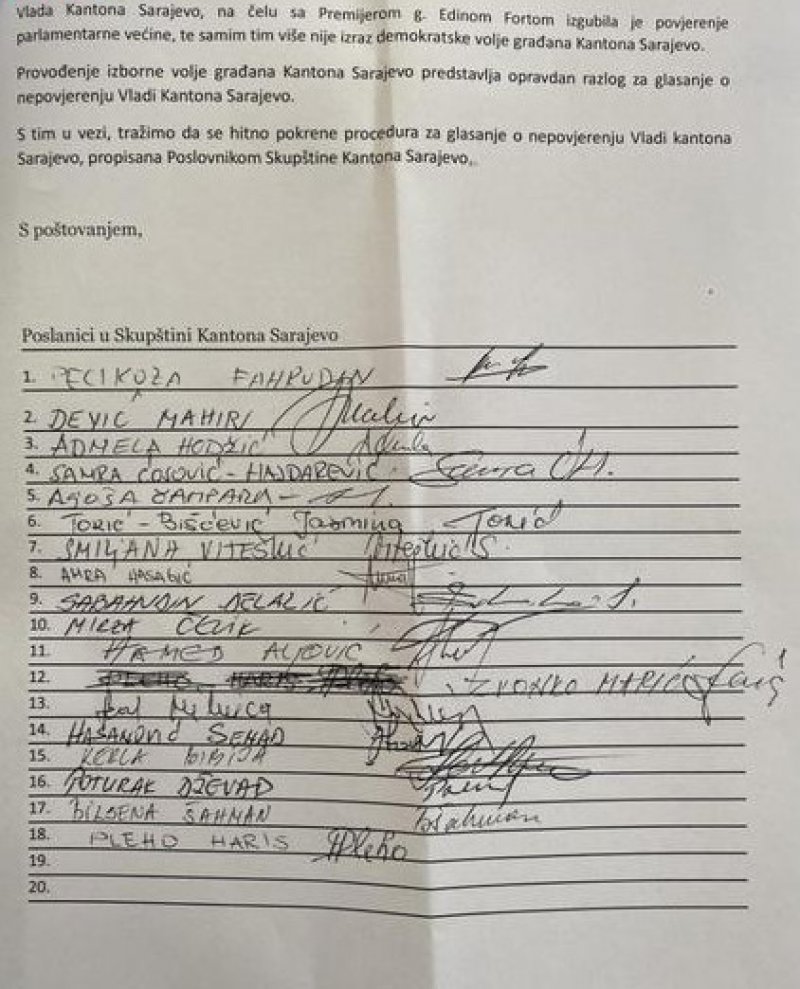 Vlada Kantona Sarajevo, na čelu sa Premijerom g. Edinom Fortom izgubila je povjerenje
parlamentarne većine, te samim tim više nije izraz demokratske volje građana Kantona Sarajevo.
Provođenje izborne volje građana Kantona Sarajevo predstavlja opravdan razlog za glasanje o
nepovjerenju Vladi Kantona Sarajevo.
S tim u vezi, tražimo da se hitno pokrene procedura za glasanje o nepovjerenju Vladi kantona
Sarajevo, propisana Poslovnikom Skupštine Kantona Sarajevo.
S poštovanjem,
Poslanici u Skupštini Kantona Sarajevo
1. PECIKOZA FAHRUDAN
2. DEVIĆ MAHIR
3. ADMELA HODŽIĆ Admela
4. SAMRA ĆOSOVIĆ - HAJDAREVIĆ Samra ĆH.
5.
6. TORIĆ - BIŠĆEVIĆ Jasmina Torić
7. SMILJANA VITEŠKIĆ Viteškić S.
8. AMRA HASAGIĆ
9. SABAHUDIN DELALIĆ
10. MIRZA ČELIK
11. HAMED ALJOVIĆ
12. PLEHO HARIS ZVONKO MARIĆ
13.
14. HASANOVIĆ SENAD
15. KERLA BIBIJA
16. POTURAK DŽEVAD
17. BILSENA ŠAHMAN BŠahman
18. PLEHO HARIS HPleho
19.
20.